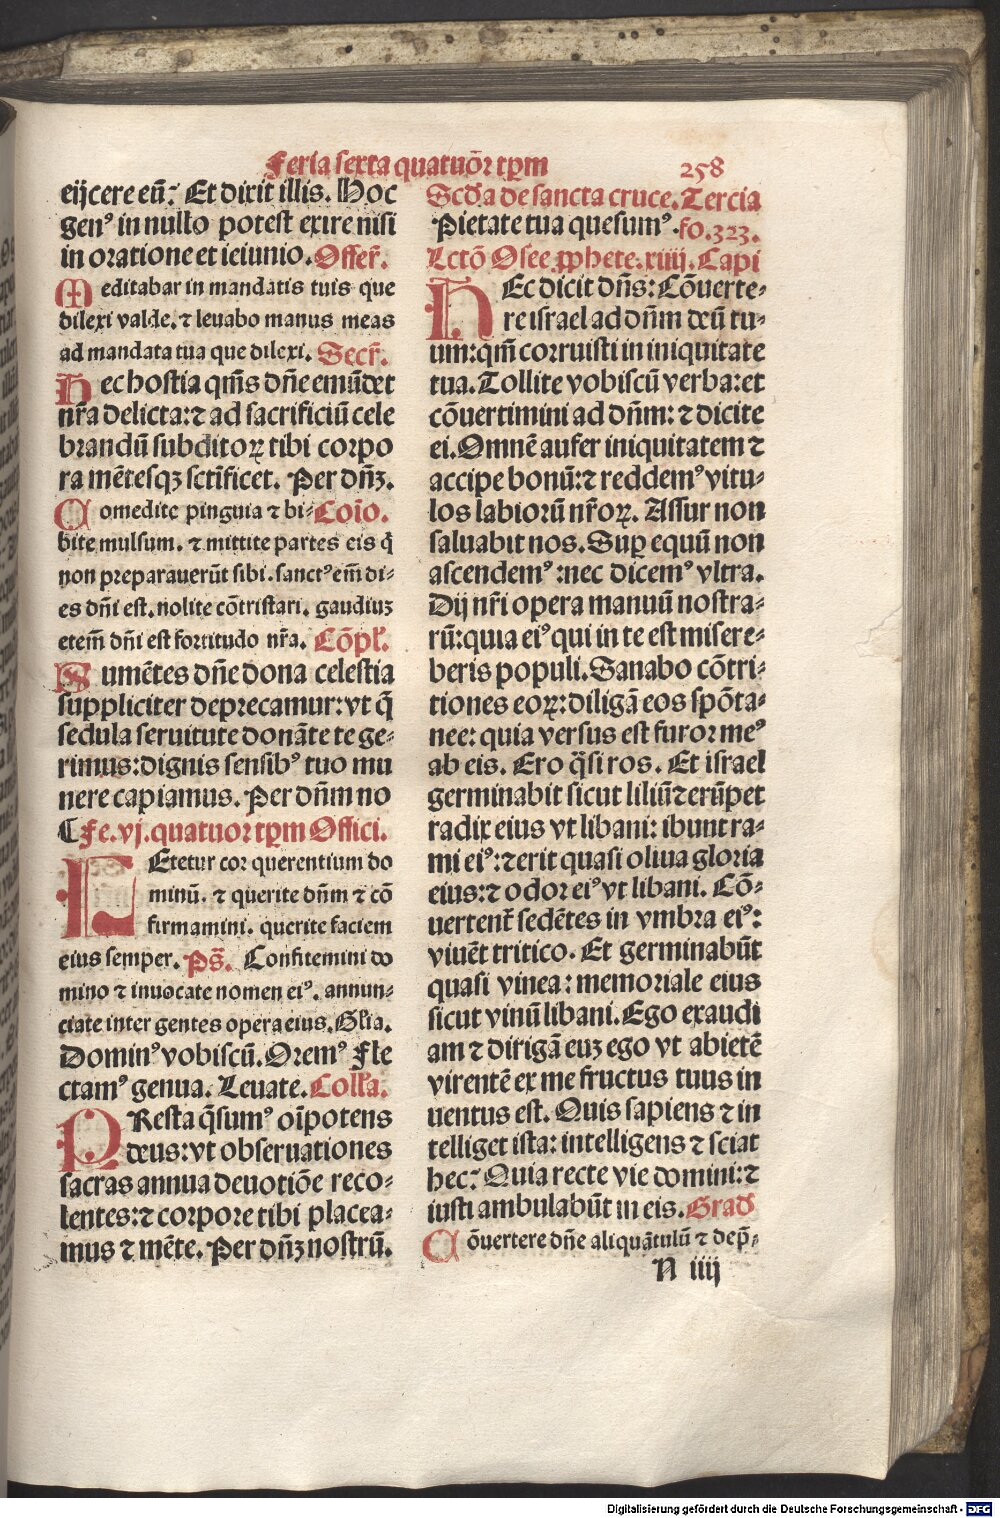 Feria sexta quatuõr tꝑm 258
eijcere eũ? Et dixit illis. Hoc
genꝰ in nullo potest exire nisi
in oratione et ieiunio. Offer̃.
Meditabar in mandatis tuis que
dilexi valde. ⁊ leuabo manus meas
ad mandata tua que dilexi. Secr̃.
Hec hostia q̃m̃s dñe emũdet
nr̃a delicta: ⁊ ad sacrificiũ cele
brandũ subditoꝝ tibi corpo
ra mẽtesqꝫ sctĩficet. Per dñꝫ.
Comedite pinguia ⁊ bi⸗ Coĩo.
bite mulsum. ⁊ mittite partes eis q̃
non preparauerũt sibi. sanctꝰ em̃ di⸗
es dñi est. nolite cõtristari. gaudiuꝫ
etem̃ dñi est fortitudo nr̃a. Cõpl̃.
Sumẽtes dñe dona celestia
suppliciter deprecamur: vt q̃
sedula seruitute donãte te ge⸗
rimus: dignis sensibꝰ tuo mu
nere capiamus. Per dñm no
¶ Fe. vj. quatuor tꝑm Offici.
LEtetur cor querentium do
minũ. ⁊ querite dñm ⁊ cõ
firmamini. querite faciem
eius semper. Ps̃. Confitemini do
mino ⁊ inuocate nomen eiꝰ. annun⸗
ciate inter gentes opera eius. Gl̃ia.
Dominꝰ vobiscũ. Oremꝰ Fle
ctamꝰ genua. Leuate. Coll̃a.
PResta q̃sumꝰ oĩpotens
deus: vt obseruationes
sacras annua deuotiõe reco⸗
lentes: ⁊ corpore tibi placea⸗
mus ⁊ mẽte. Per dñꝫ nostrũ.
Scd̃a de sancta cruce. Tercia
Pietate tua quesumꝰ. fo. 323.
Lctõ Osee ꝓphete. xiiij. Capi
HEc dicit dñs: Cõuerte⸗
re israel ad dñm deũ tu⸗
um: qm̃ corruisti in iniquitate
tua. Tollite vobiscũ verba: et
cõuertimini ad dñm: ⁊ dicite
ei. Omnẽ aufer iniquitatem ⁊
accipe bonũ: ⁊ reddemꝰ vitu⸗
los labiorũ nr̃oꝝ. Assur non
saluabit nos. Suꝑ equũ non
ascendemꝰ: nec dicemꝰ vltra.
Dij nr̃i opera manuũ nostra⸗
rũ: quia eiꝰ qui in te est misere⸗
beris populi. Sanabo cõtri⸗
tiones eoꝝ: diligã eos spõta⸗
nee: quia versus est furor meꝰ
ab eis. Ero q̃si ros. Et israel
germinabit sicut liliũ ⁊ erũpet
radix eius vt libani: ibunt ra⸗
mi eiꝰ: ⁊ erit quasi oliua gloria
eius: ⁊ odor eiꝰ vt libani. Cõ⸗
uertent̃ sedẽtes in vmbra eiꝰ:
viuẽt tritico. Et germinabũt
quasi vinea: memoriale eius
sicut vinũ libani. Ego exaudi
am ⁊ dirigã euꝫ ego vt abietẽ
virentẽ ex me fructus tuus in
uentus est. Quis sapiens ⁊ in
telliget ista: intelligens ⁊ sciat
hec? Quia recte vie domini: ⁊
iusti ambulabũt in eis. Grad̃
Cõuertere dñe aliquãtulũ ⁊ dep̃⸗
N iiij
Digitalisierung gefördert durch die Deutsche Forschungsgemeinschaft - DFG